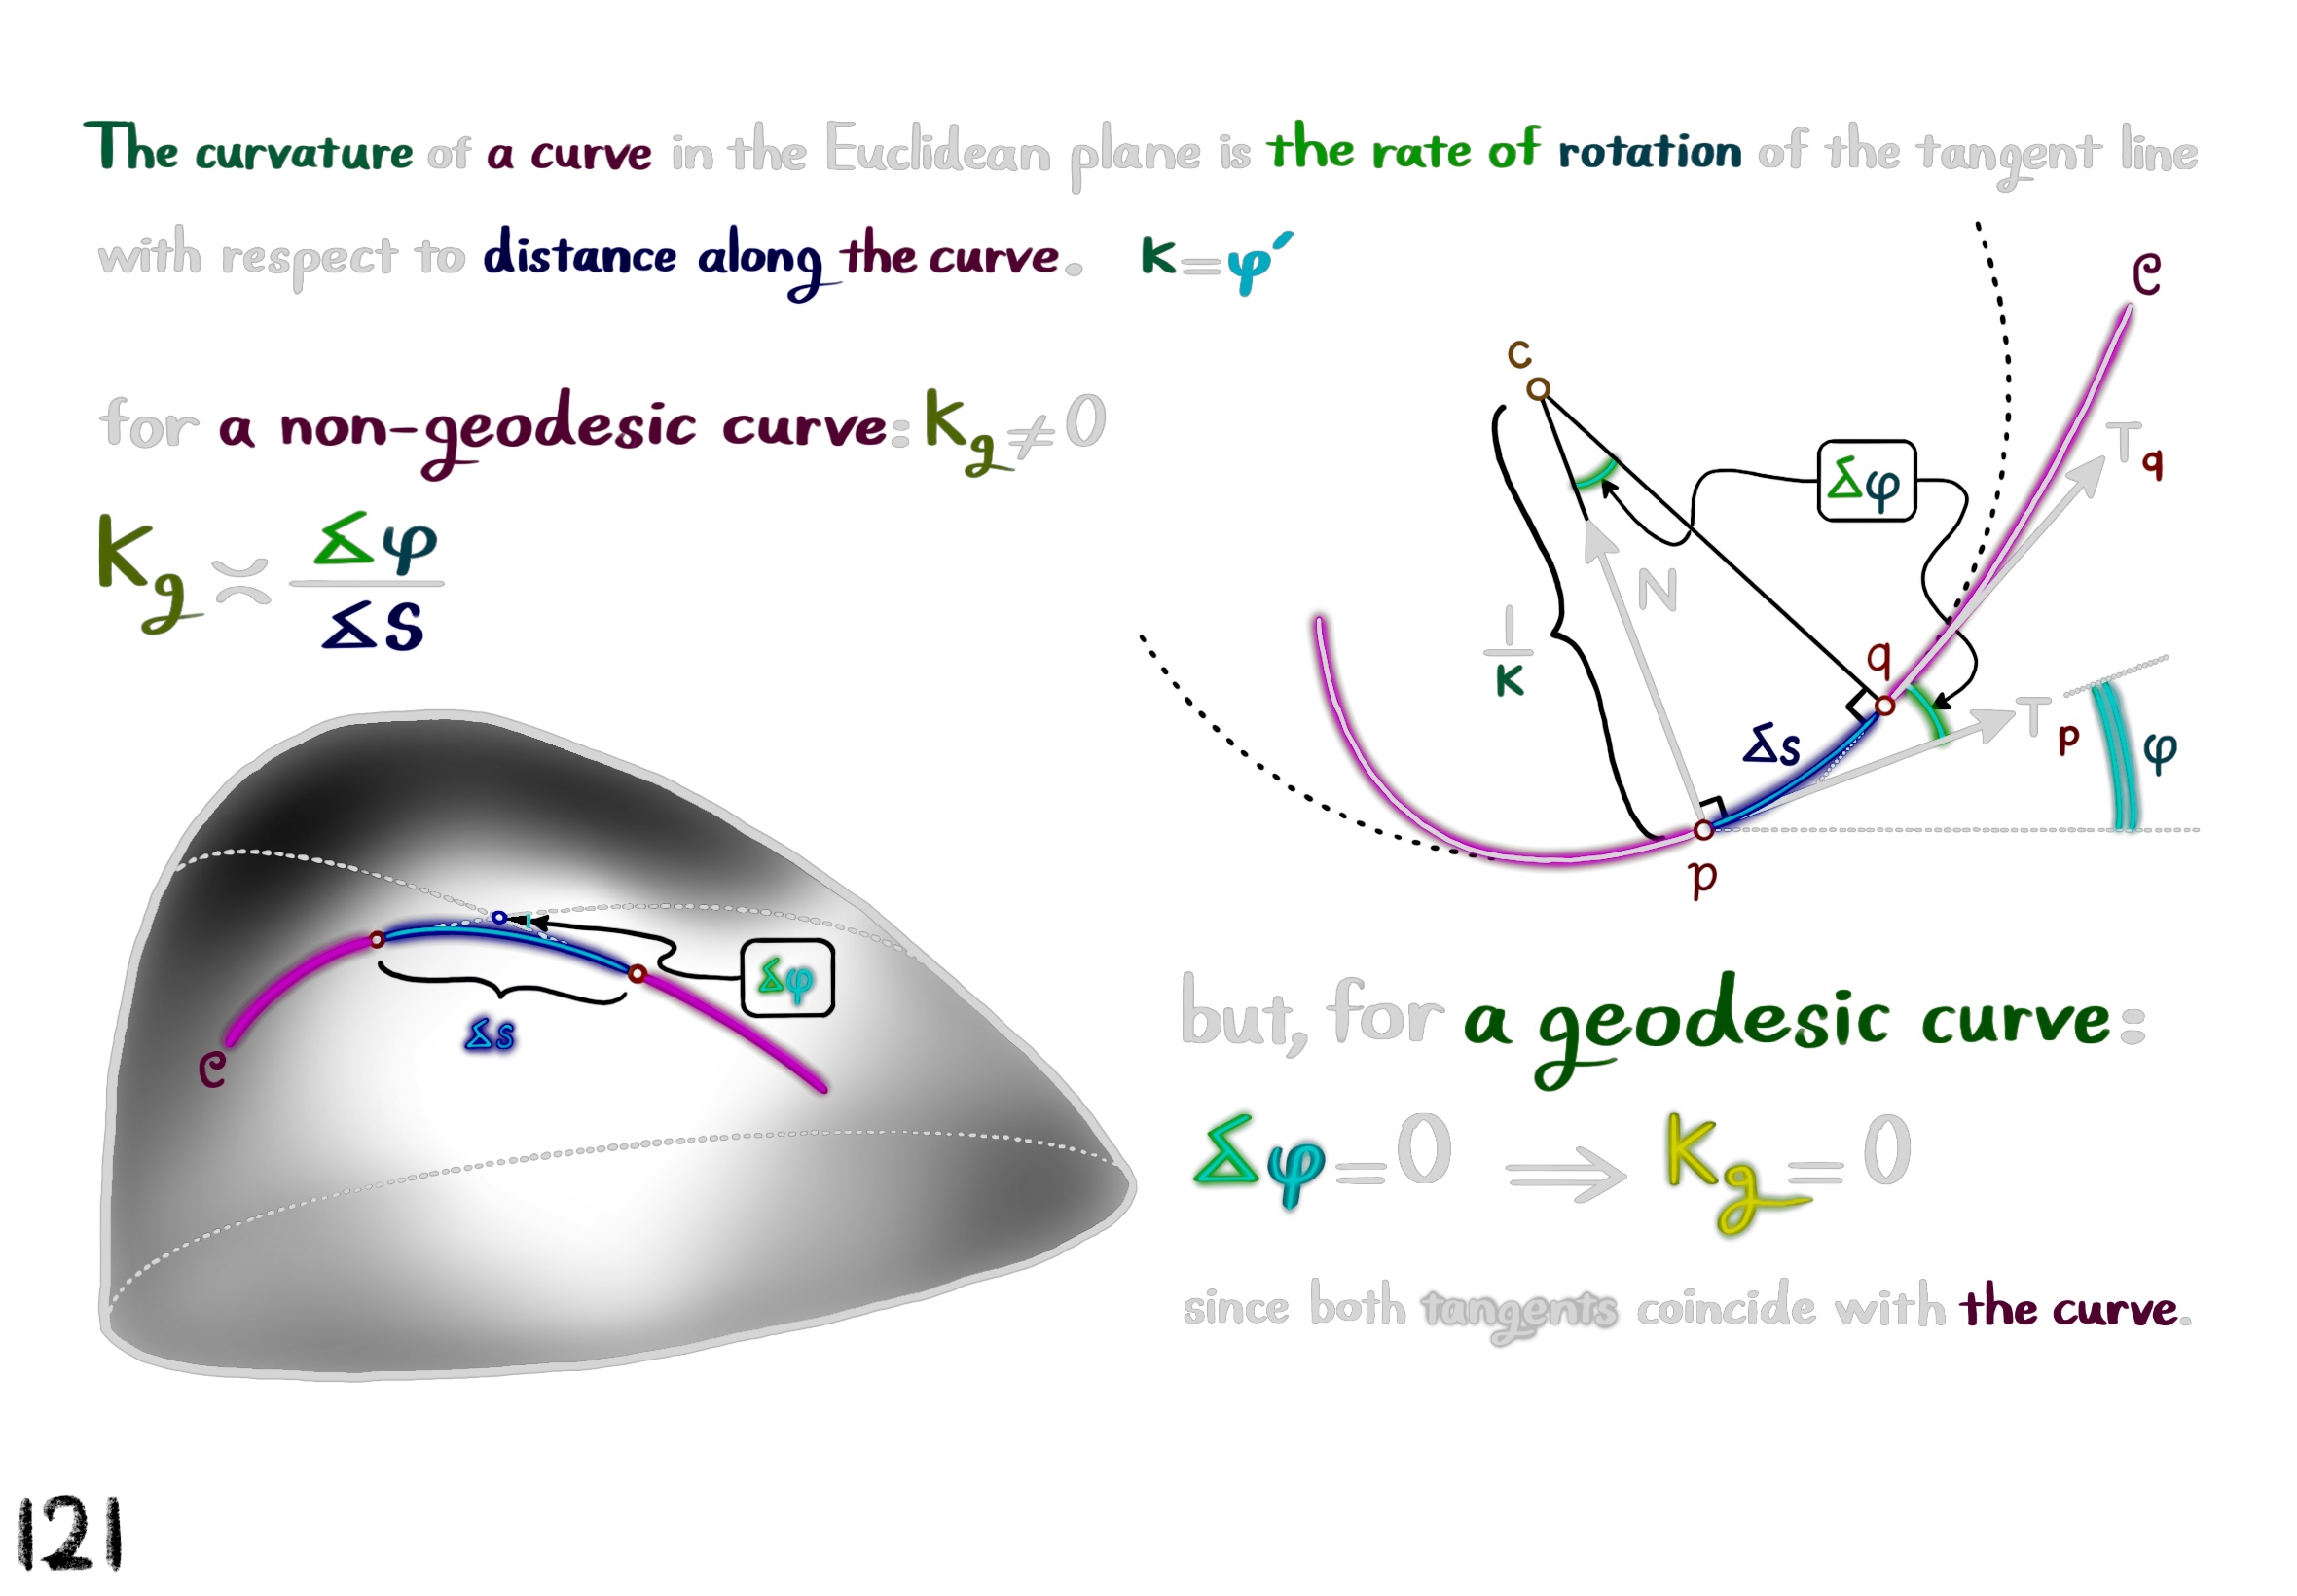 The curvature of a curve in the Euclidean plane is the rate of rotation of the tangent line
with respect to distance along the curve. κ=φ′
for a non-geodesic curve: κg≠0
κg ≍ Δφ/Δs
C
c
Δφ
Tq
N
1/κ
q
Δs
Tp
φ
p
C
Δs
Δφ
but, for a geodesic curve:
Δφ=0 ⟹ κg=0
since both tangents coincide with the curve.
121